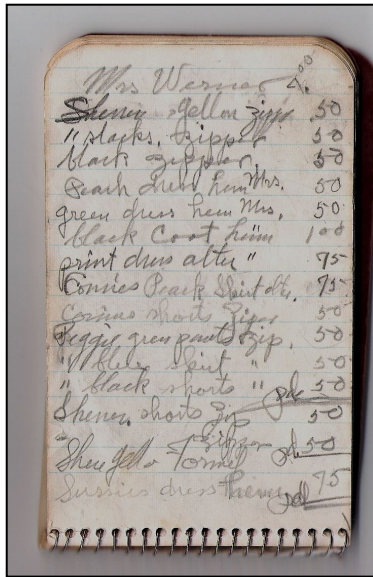 Mrs Werner 7.00
Sheren yellow zipp 50
" slacks, zipper 50
black zipper, 50
Peach dress hem Mrs. 50
green dress hem Mrs. 50
black Coat hem 1 00
print dress alter " 75
Connies Peach Skirt alt. 75
Connies shorts Zipr 50
Peggie green pants zip. 50
" blue skirt " 50
" black shorts " pd 50
Sheren shorts Zip 50
zipper
Sher yello Formel pd 50
Sussies dress hem pd 75